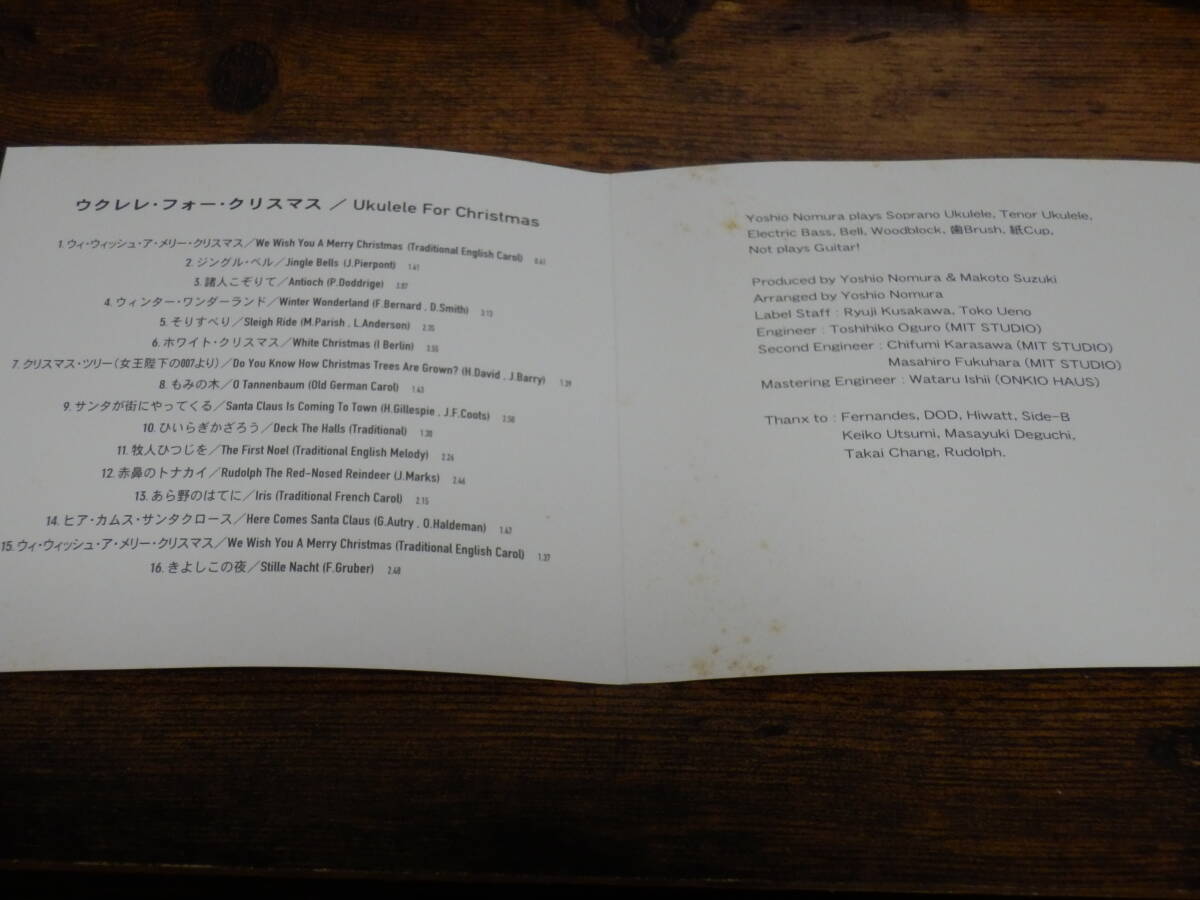 ウクレレ・フォー・クリスマス／Ukulele For Christmas
1. ウィ・ウィッシュ・ア・メリー・クリスマス／We Wish You A Merry Christmas (Traditional English Carol) 0.41
2. ジングル・ベル／Jingle Bells (J.Pierpont) 1.41
3. 諸人こぞりて／Antioch (P.Doddrige)
4. ウィンター・ワンダーランド／Winter Wonderland (F.Bernard , D.Smith) 3.13
5. そりすべり／Sleigh Ride (M.Parish , L.Anderson) 2.35
6. ホワイト・クリスマス／White Christmas (I Berlin)
7. クリスマス・ツリー(女王陛下の007より)／Do You Know How Christmas Trees Are Grown? (H.David , J.Barry) 1.39
8. もみの木／O Tannenbaum (Old German Carol) 1.43
9. サンタが街にやってくる／Santa Claus Is Coming To Town (H.Gillespie , J.F.Coots) 2.50
10. ひいらぎかざろう／Deck The Halls (Traditional) 1.30
11. 牧人ひつじを／The First Noel (Traditional English Melody) 2.26
12. 赤鼻のトナカイ／Rudolph The Red-Nosed Reindeer (J.Marks) 2.46
13. あら野のはてに／Iris (Traditional French Carol) 2.15
14. ヒア・カムス・サンタクロース／Here Comes Santa Claus (G.Autry , O.Haldeman) 1.47
15. ウィ・ウィッシュ・ア・メリー・クリスマス／We Wish You A Merry Christmas (Traditional English Carol) 1.37
16. きよしこの夜／Stille Nacht (F.Gruber) 2.48
Yoshio Nomura plays Soprano Ukulele, Tenor Ukulele,
Electric Bass, Bell, Woodblock, 歯Brush, 紙Cup,
Not plays Guitar!
Produced by Yoshio Nomura & Makoto Suzuki
Arranged by Yoshio Nomura
Label Staff : Ryuji Kusakawa, Toko Ueno
Engineer : Toshihiko Oguro (MIT STUDIO)
Second Engineer : Chifumi Karasawa (MIT STUDIO)
Masahiro Fukuhara (MIT STUDIO)
Mastering Engineer : Wataru Ishii (ONKIO HAUS)
Thanx to : Fernandes, DOD, Hiwatt, Side-B
Keiko Utsumi, Masayuki Deguchi,
Takai Chang, Rudolph.